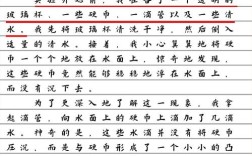 玻璃杯，一些硬币，一滴管以及一些清
水。我先将玻璃杯清洗干净，然后倒入
适量的清水。接着，我小心翼翼地将硬
币一个个地放在水面上，惊奇地发现，
这些硬币竟然能够稳稳地浮在水面上，
而没有沉下去。
为了更深入地了解这一现象，我拿
起滴管，向水面上的硬币上滴加了几滴
水。神奇的是，这些水滴并没有将硬币
压沉，而是与硬币形成了一个小小的凸